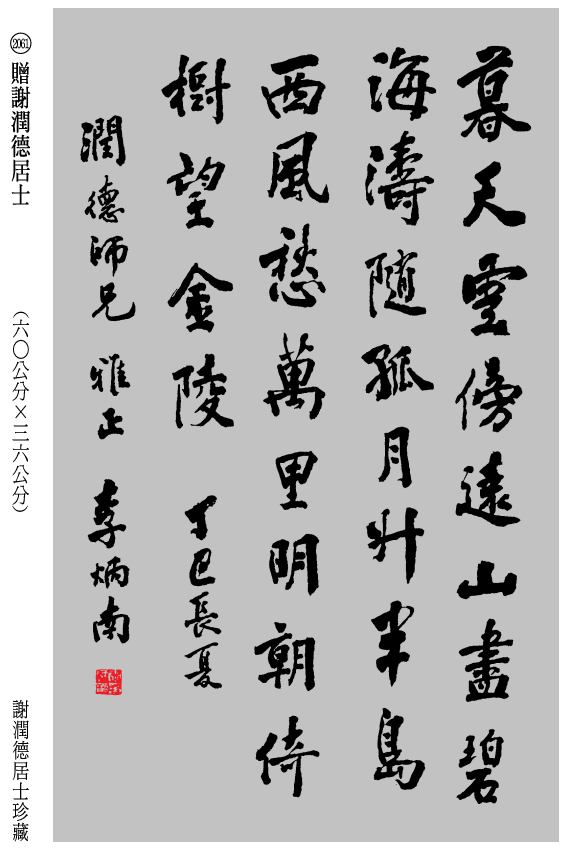 暮天雲傍遠山盡碧
海濤隨孤月升半島
西風愁萬里明朝倚
樹望金陵 丁巳長夏
潤德師兄 雅正 李炳南
2061 贈謝潤德居士
（六〇公分×三六公分）
謝潤德居士珍藏